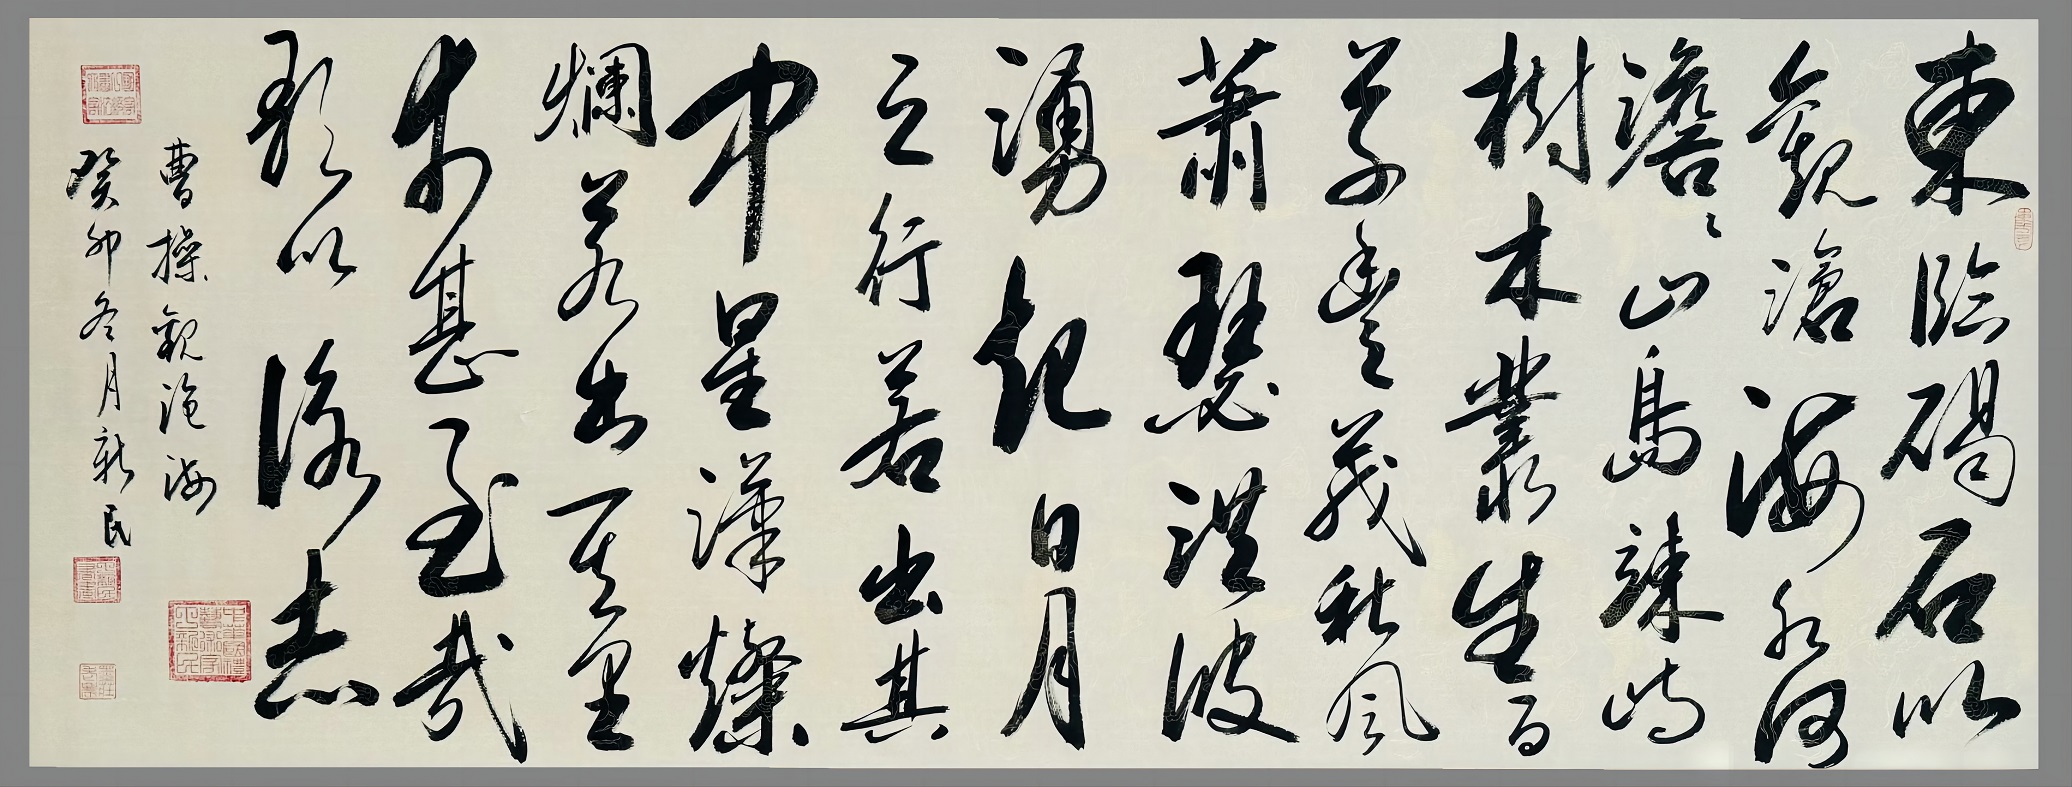 東臨碣石以
觀滄海水何
澹澹山島竦峙
樹木叢生百
草豐茂秋風
蕭瑟洪波
湧起日月
之行若出其
中星漢燦
爛若出其里
幸甚至哉
歌以詠志
曹操觀滄海
癸卯冬月新民